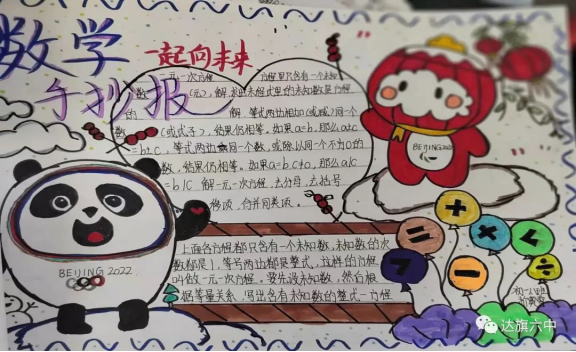 数学
手抄报
一起向未来
一元一次方程 方程里只含有一个未知
数 (元)，解：
的 解，等式两边相加(或减)同一个
数 (或式子)，结果仍相等，如果a=b,那么a±c
=b±c，等式两边乘同一个数，或除以同一个不为0的
数，结果仍相等。如果a=b,c≠0,那么a/c
=b/c 解一元一次方程，去分母，去括号
移项，合并同类项。
上面各方程都只含有一个未知数，未知数的次
数都是1，等号两边都是整式，这样的方程
叫做一元一次方程。要先设未知数，然后根
据等量关系，写出含有未知数的 方程
BEIJING 2022
BEIJING 2022
+
=
×
√
7
-
÷
达旗六中